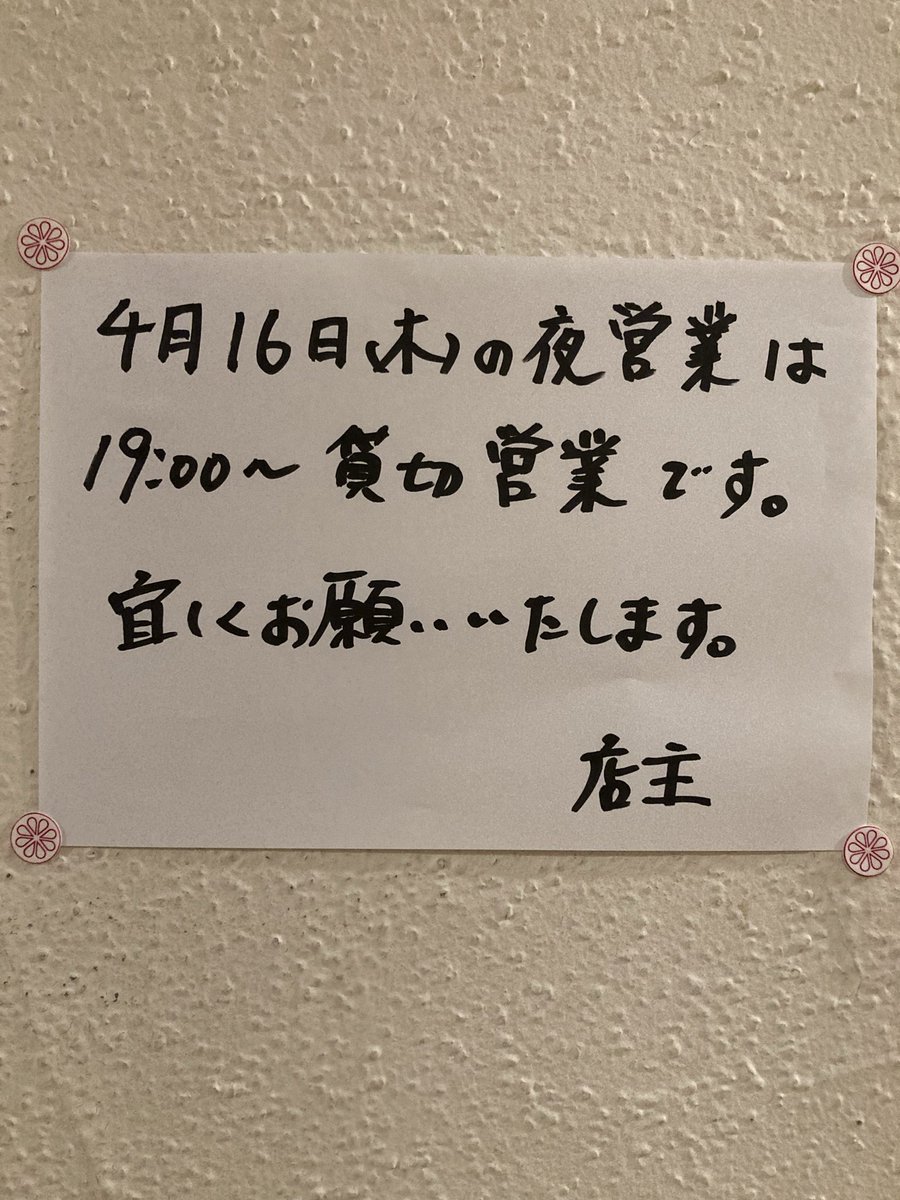 4月16日(木)の夜営業は
19:00〜貸切営業です。
宜しくお願いいたします。
店主